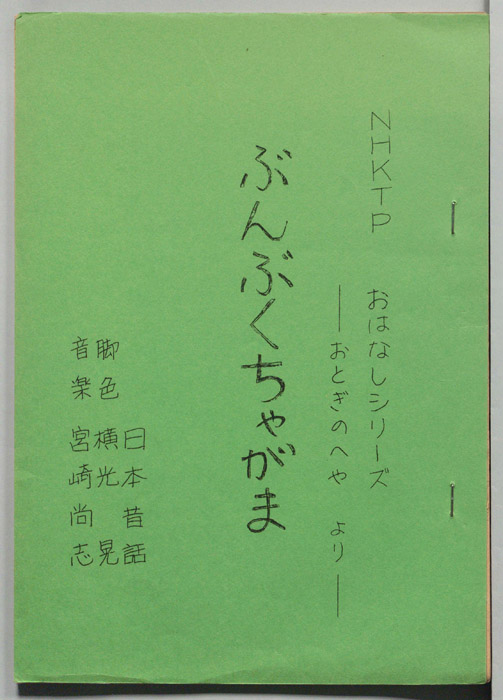 NHKTP おはなしシリーズ
―おとぎのへや より―
ぶんぶくちゃがま
日本昔話
脚色 横光晃
音楽 宮崎尚志